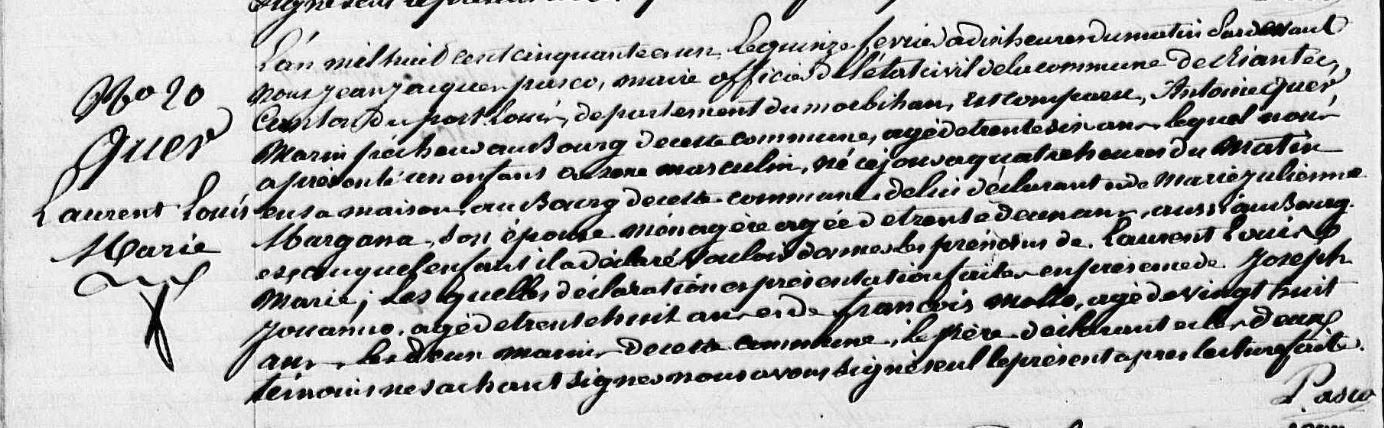 No 20
Quer
Laurent Louis
Marie
L'án mil huit cent cinquante un, le quinze fevrier a dix heures du matin pardevant
nous jean jacques pasco, maire officier de l'état civil de la commune de Riantec,
Canton du port Louis, departement du morbihan, est comparu, Antoine Quer
Marin pécheur au Bourg de cette commune, agé de trente six ans, lequel nous
a présenté un enfant du sexe masculin, né ce jour a quatre heures du matin
en sa maison, au Bourg de cette commune, de lui déclarant et de Marie julienne
Margana, son épouse ménagère agée de trente deux ans, aussi au Bourg
et auquel enfant il a déclaré vouloir donner les prénoms de Laurent Louis
Marie; Les quelles déclaration et présentation faites en présence de Joseph
jouanno, agé de trente huit ans et de françois mollo, agé de vingt huit
ans, les deux marins de cette commune, le père déclarant et les deux
témoins ne sachant signer nous avons signé seul le présent apres lecture faite.
Pasco